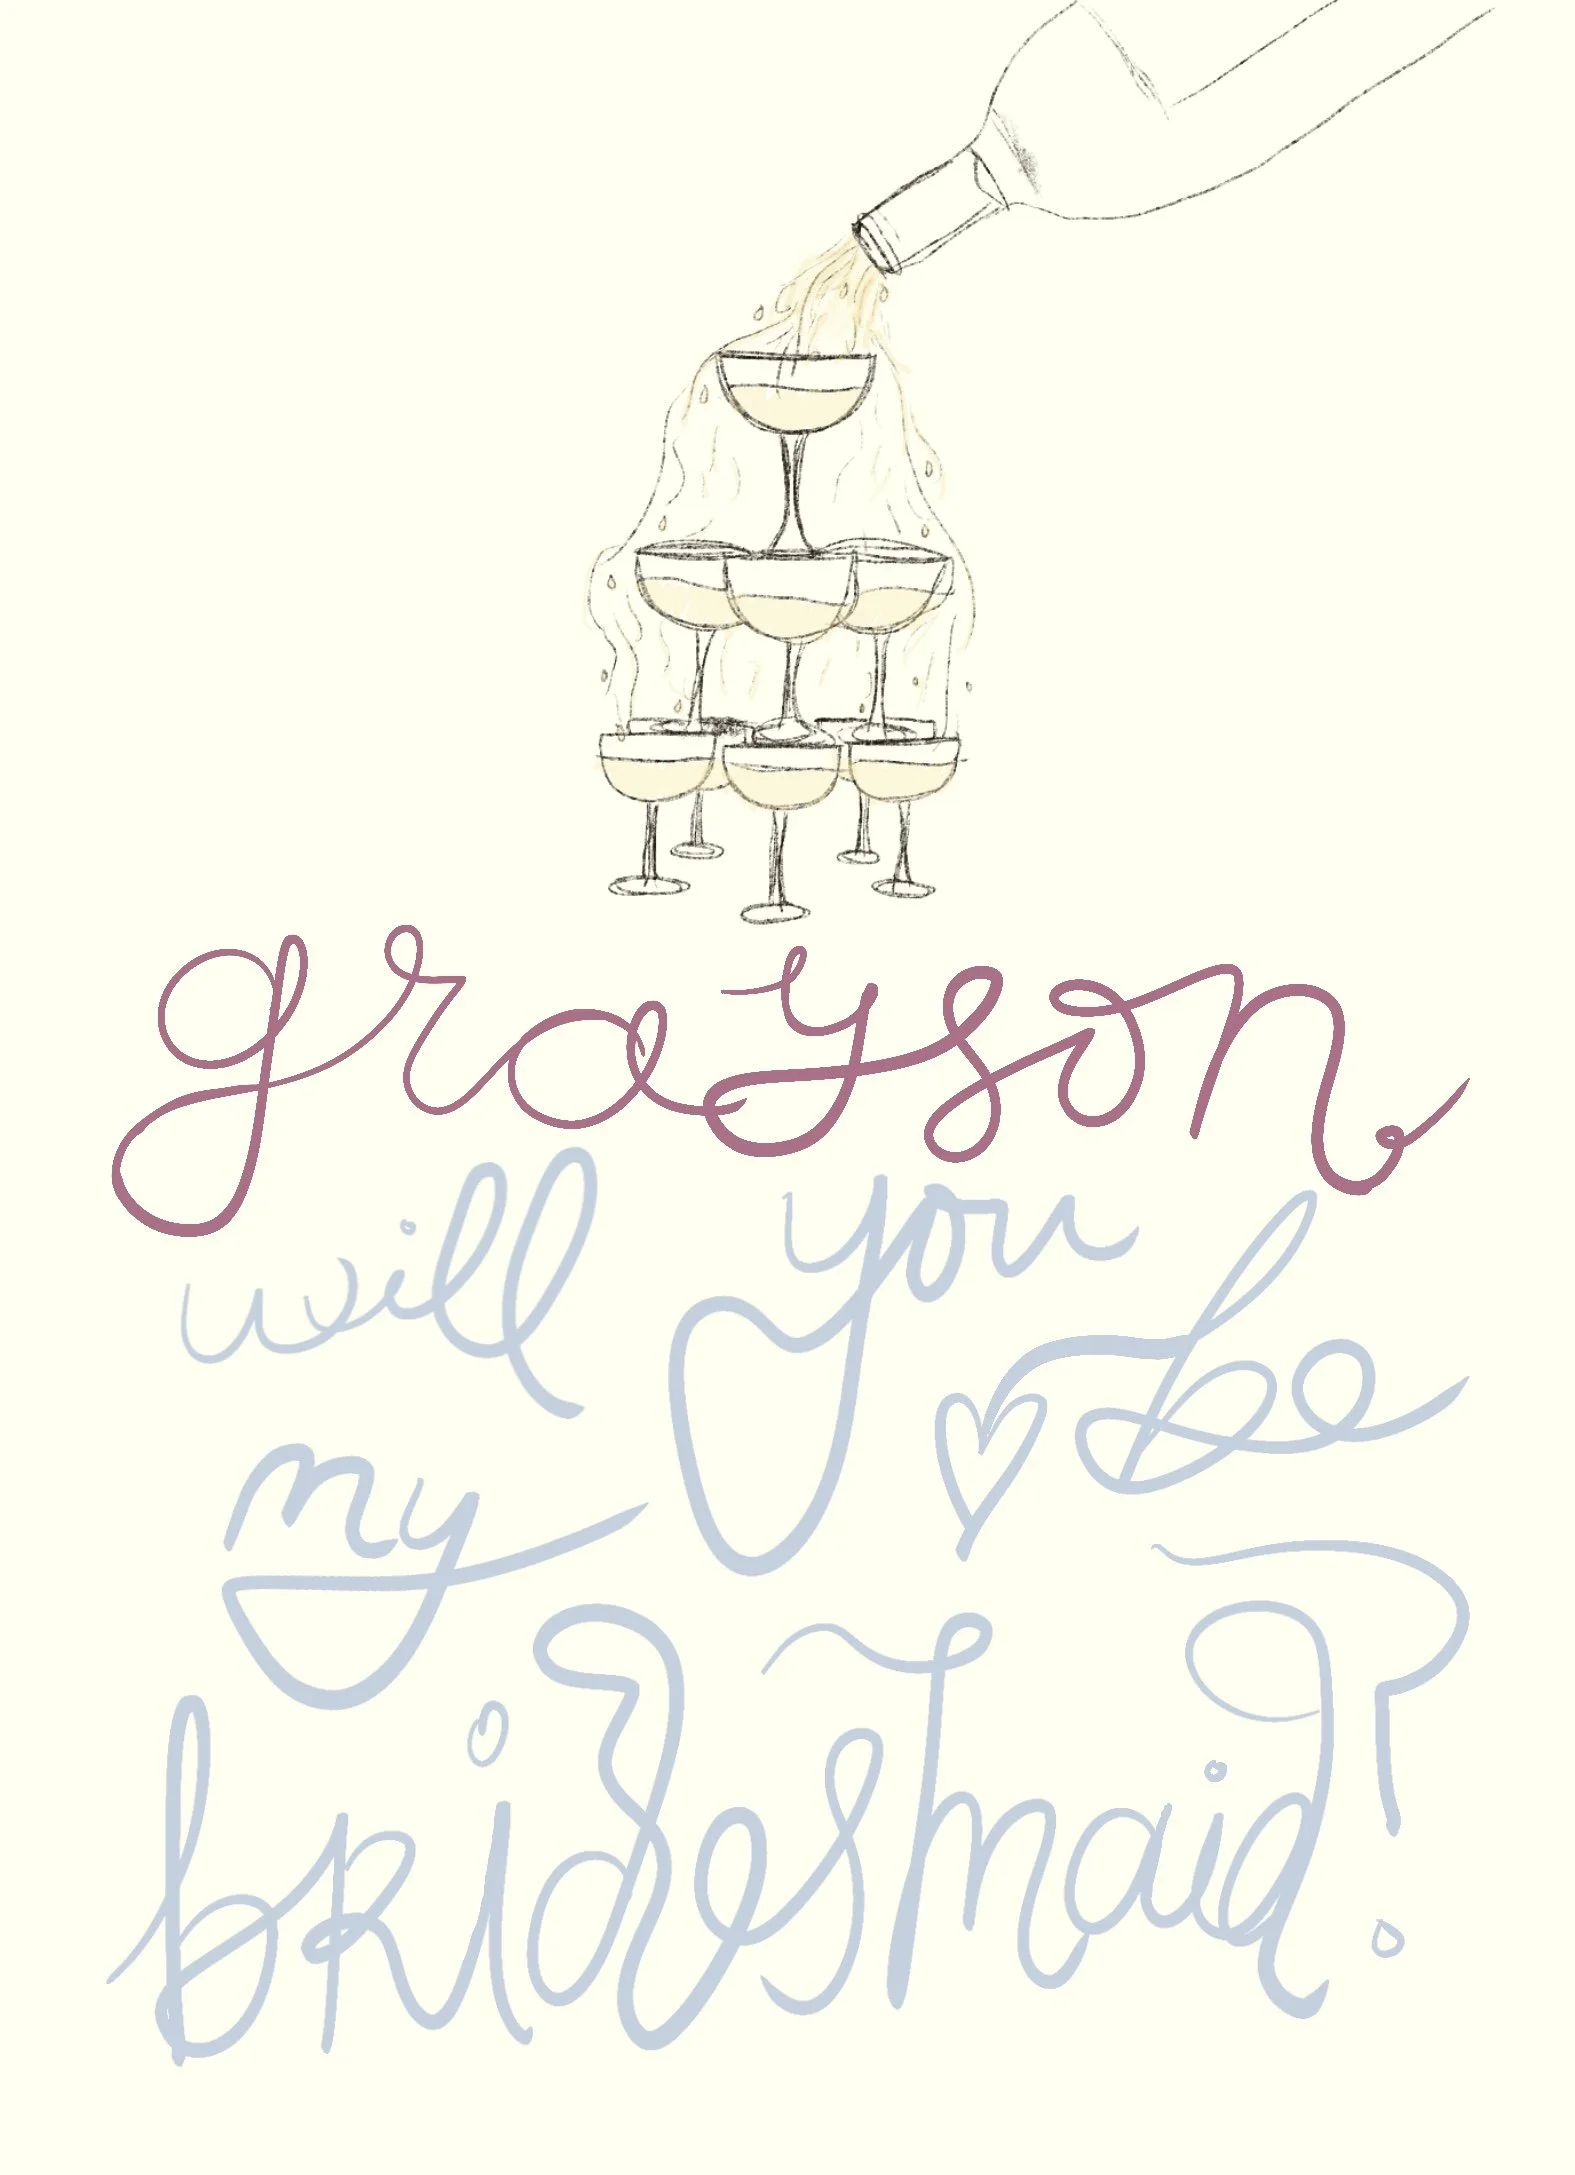 grayson
will you be
my
bridesmaid?